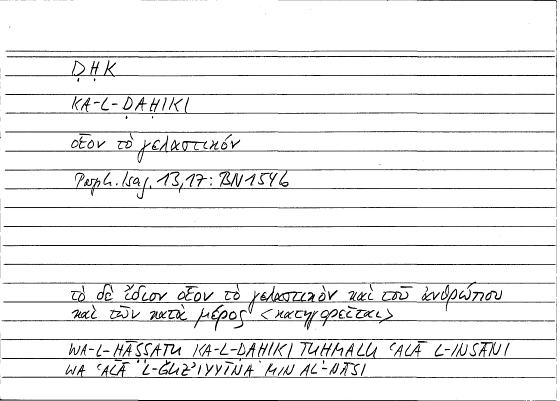 ḌḤK
KA-L-ḌAḤIKI
οἷον τὸ γελαστικόν
Porph. Isag. 13,17: BN 154b
τὸ δὲ ἴδιον οἷον τὸ γελαστικὸν καὶ τοῦ ἀνθρώπου
καὶ τῶν κατὰ μέρος <κατηγορεῖται>
WA-L-ḪĀṢṢATU KA-L-ḌAḤIKI TUḤMALU ʿALĀ L-INSĀNI
WA ʿALĀ L-ǦUZʾIYYĪNA MIN AL-NĀSI